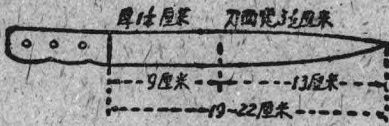 厚1½厘米 刀面宽3½厘米
9厘米 13厘米
19~22厘米